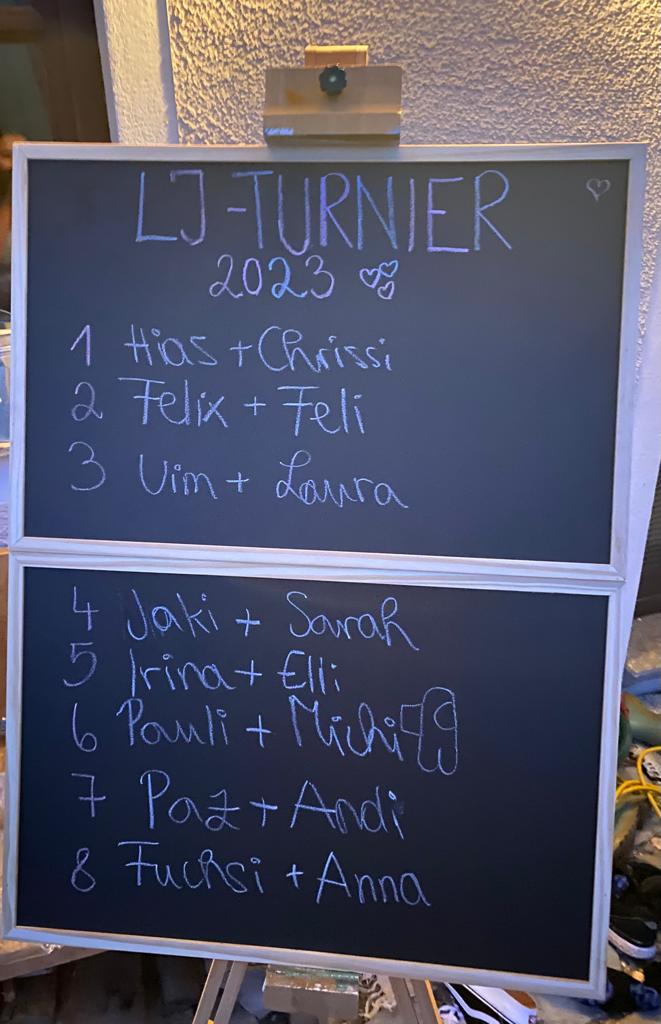 LJ-TURNIER
2023
1 Hias + Chrissi
2 Felix + Feli
3 Vim + Laura
4 Jaki + Sarah
5 Irina + Elli
6 Pauli + Michi
7 Paz + Andi
8 Fuchsi + Anna